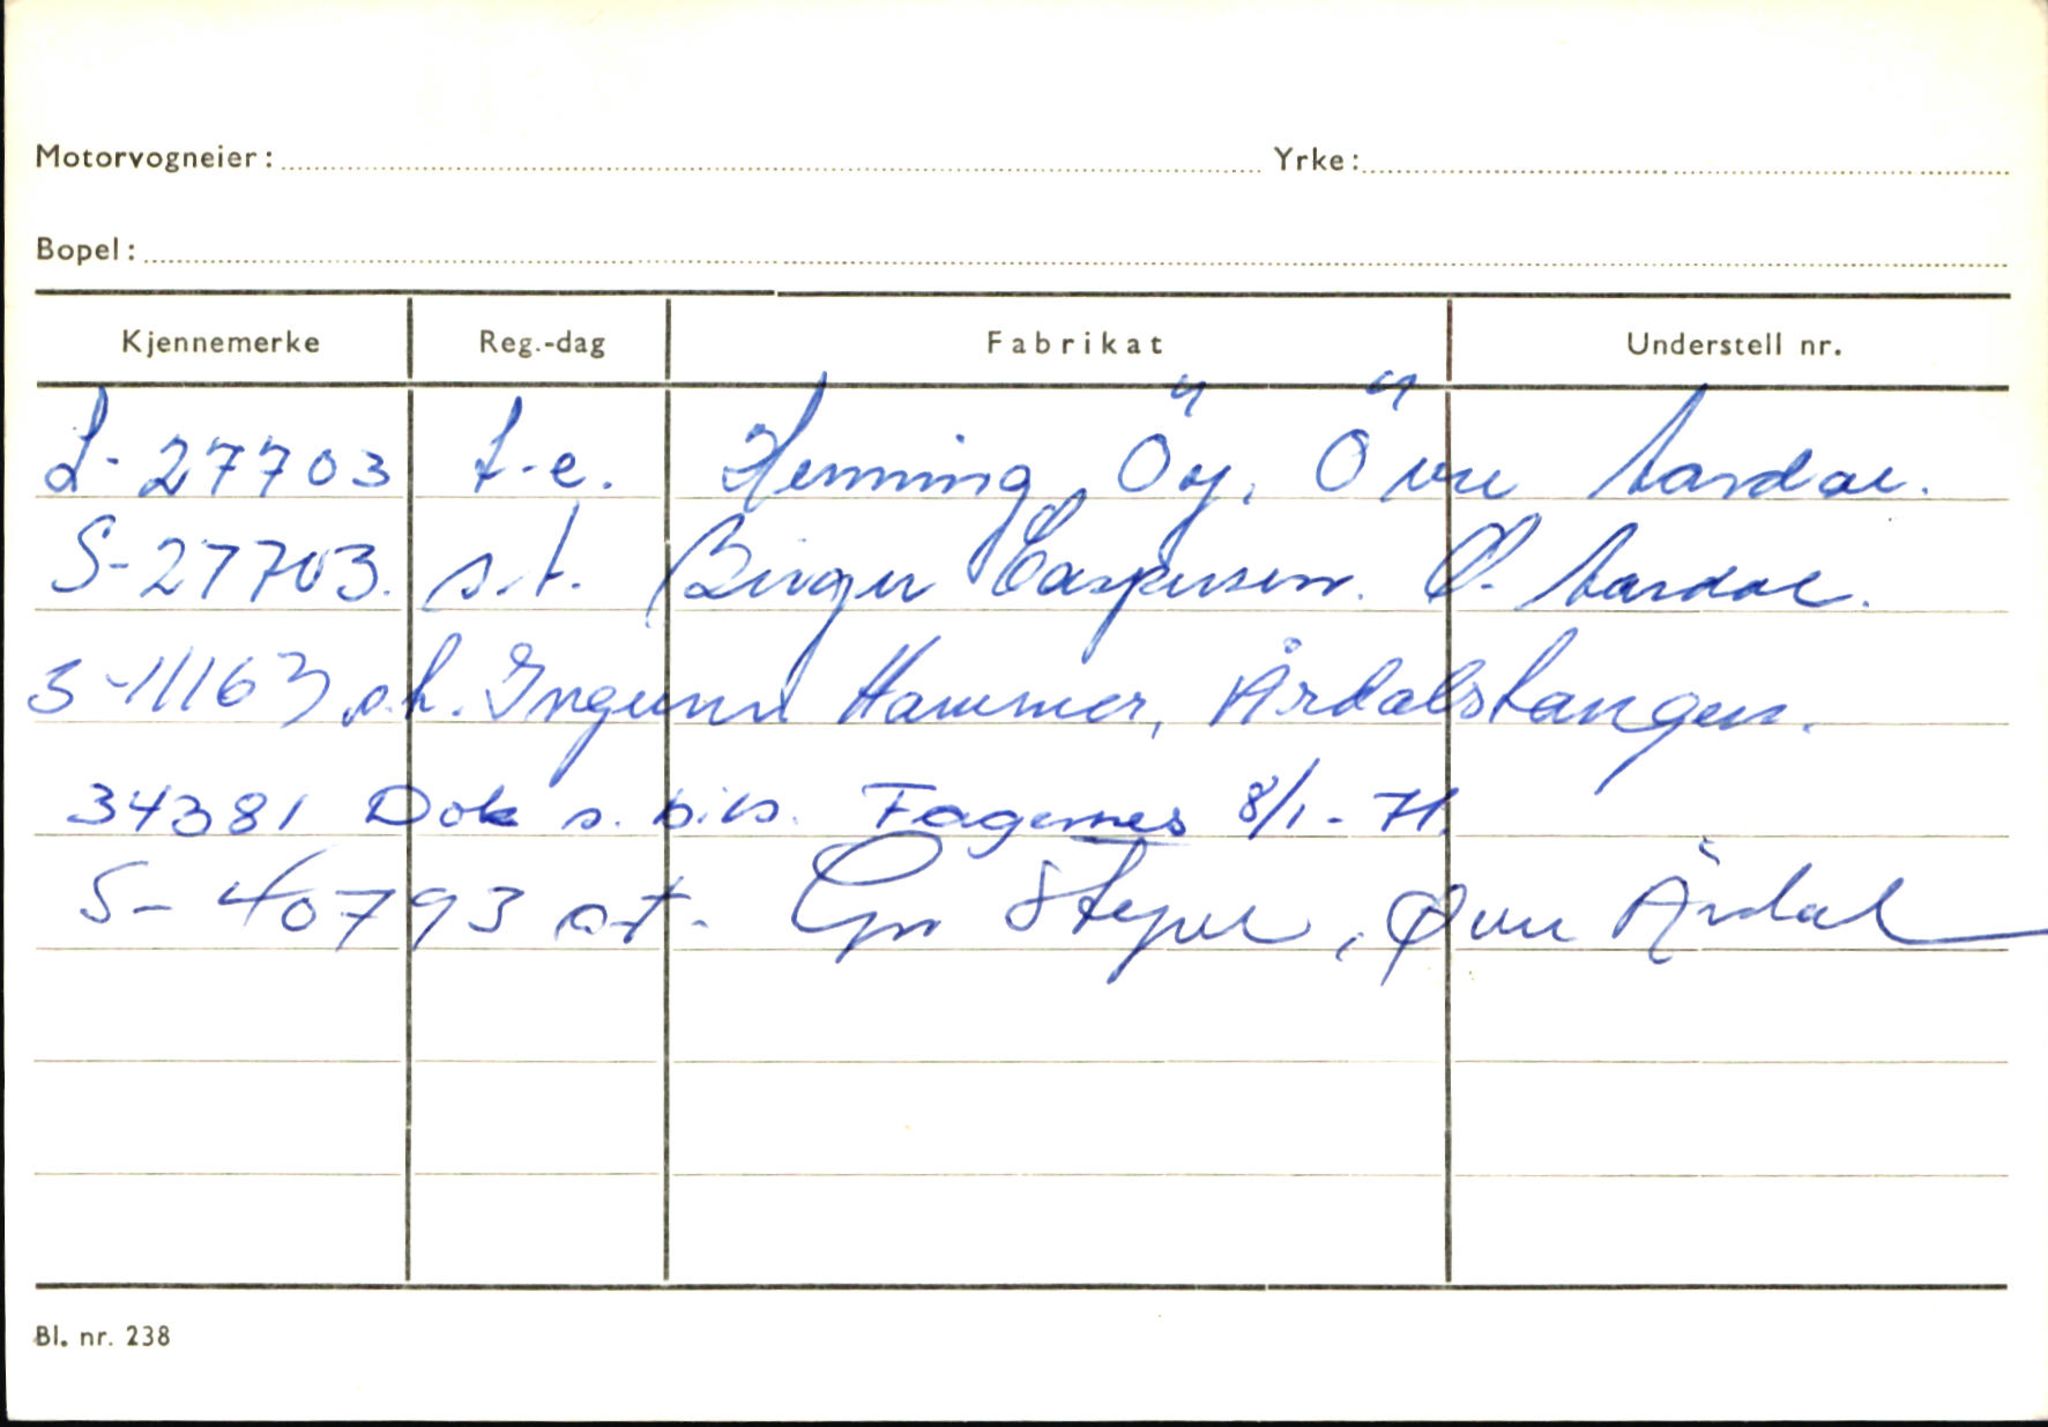 Motorvogneier: Yrke:
Bopel:
Kjennemerke Reg.-dag Fabrikat Understell nr.
S-27703 t-e. Henning Öy, Övre Aardal.
S-27703. s.t. Birger Caspersen. Ø. Aardal.
S-11163 s.h. Ingunn Hammer, Årdalstangen.
34381 Dok s. bils. Fagernes 8/1-71.
S-40793 o-t. Steger, Øvre Årdal
Bl. nr. 238